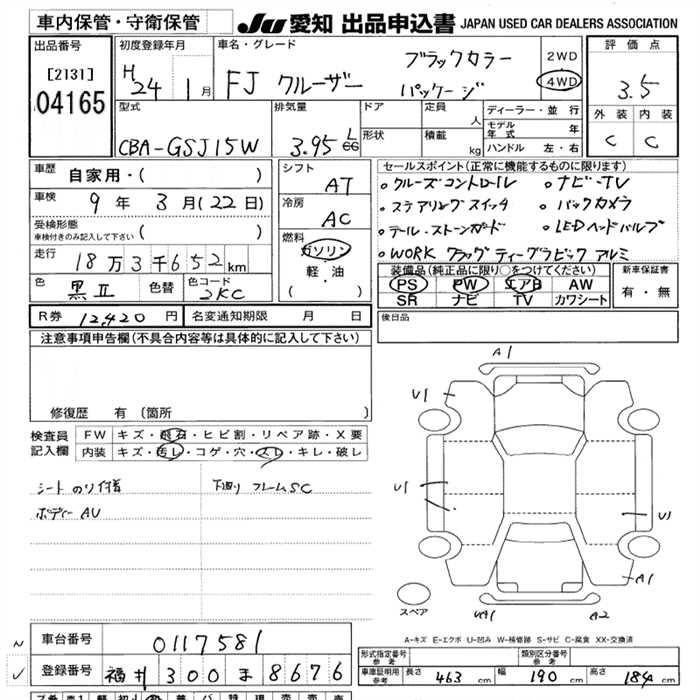 車内保管・守衛保管
JU 愛知 出品申込書 JAPAN USED CAR DEALERS ASSOCIATION
出品番号
[2131]
04165
初度登録年月
H 24 1月
車名・グレード
FJ クルーザー
ブラックカラー
パッケージ
2WD
4WD
評価点
3.5
外装 内装
C C
型式
CBA-GSJ15W
排気量
3.95 L cc
ドア
形状
定員 人
積載 kg
ディーラー・並行
モデル年式 年
ハンドル 左・右
車歴 自家用・( )
車検 9年 3月(22日)
受検形態
車検付きのみ記入して下さい ( )
走行 18万3千652km
色 黒Ⅱ 色替 色コード 2KC
シフト AT
冷房 AC
燃料
ガソリン
軽・油
( )
セールスポイント(正常に機能するものに限ります)
・クルーズコントロール ・ナビ・TV
・ステアリングスイッチ ・バックカメラ
・テール・ストーンガード ・LEDヘッドバルブ
・WORK クラッグ ティーグラビック アルミ
装備品(純正品に限り○をつけてください)
PS PW エアB AW
SR ナビ TV カワシート
新車保証書
有・無
R券 12,420円 名変通知期限 月 日
後日品
注意事項申告欄(不具合内容等は具体的に記入して下さい)
修復歴 有 (箇所 )
検査員記入欄
FW キズ・飛石・ヒビ割・リペア跡・X要
内装 キズ・汚レ・コゲ・穴・スレ・キレ・破レ
シート のり仕様 下廻り フレームSC
ボディー AU
A1
U1
U1
U1
A1
A2
スペア
A-キズ E-エクボ U-凹み W-補修跡 S-サビ C-腐食 XX-交換済
車台番号 0117581
登録番号 福井 300 ま 8676
形式指定番号 参考
類別区分番号 参考
車庫証明用参考 長さ 463 cm 幅 190 cm 高さ 184 cm